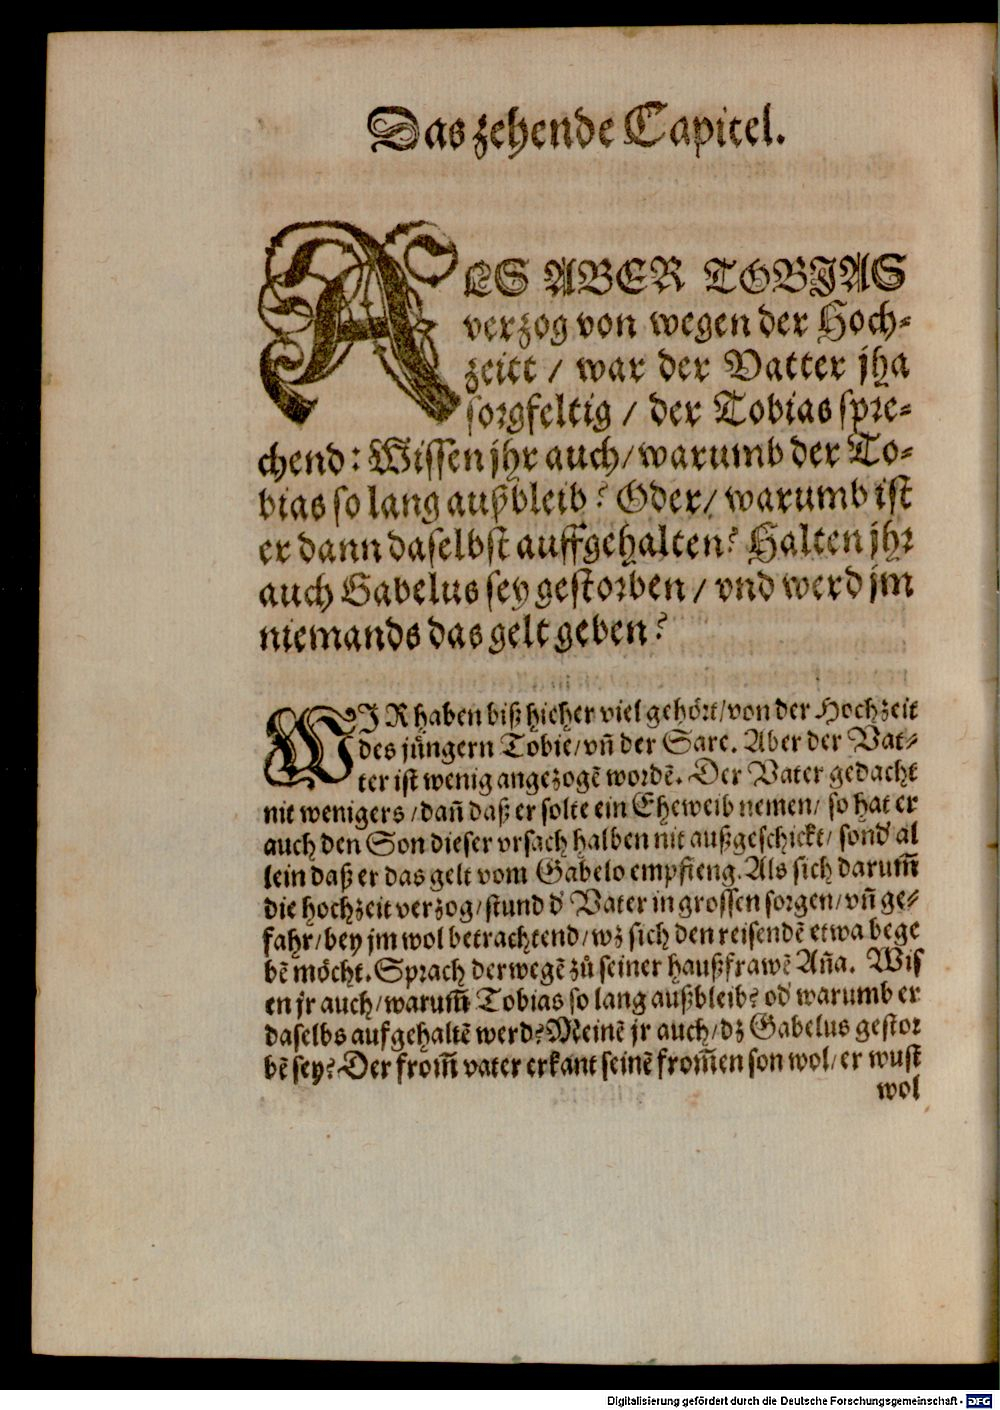 Das zehende Capitel.
ALS ABER TOBIAS
verzog von wegen der Hoch-
zeitt / war der Vatter jha
sorgfeltig / der Tobias spre-
chend: Wissen jhr auch / warumb der To-
bias so lang außbleib? Oder / warumb ist
er dann daselbst auffgehalten? Halten jhr
auch Gabelus sey gestorben / vnd werd jm
niemands das gelt geben?
WIR haben biß hieher viel gehört / von der Hochzeit
des jüngern Tobie / vñ der Sare. Aber der Vat-
ter ist wenig angezogẽ wordẽ. Der Vater gedacht
nit wenigers / dañ daß er solte ein Eheweib nemen / so hat er
auch den Son dieser vrsach halben nit außgeschickt / sond' al
lein daß er das gelt vom Gabelo empfieng. Als sich darum̃
die hochzeit verzog / stund d' Vater in grossen sorgen / vñ ge-
fahr / bey jm wol betrachtend / wz sich den reisendẽ etwa bege
bẽ möcht. Sprach derwegẽ zů seiner haußfrawẽ Aña. Wis
en jr auch / warum̃ Tobias so lang außbleib? od' warumb er
daselbs aufgehaltẽ werd? Meinẽ jr auch / dz Gabelus gestor
bẽ sey? Der from̃ vater erkant seinẽ from̃en son wol / er wust
wol
Digitalisierung gefördert durch die Deutsche Forschungsgemeinschaft - DFG